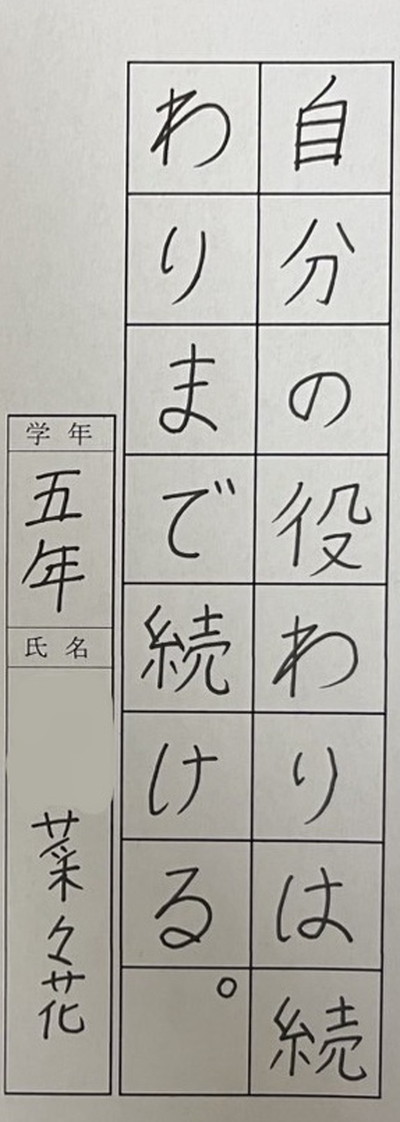 自分の役わりは続
わりまで続ける。
学年
五年
氏名
菜々花